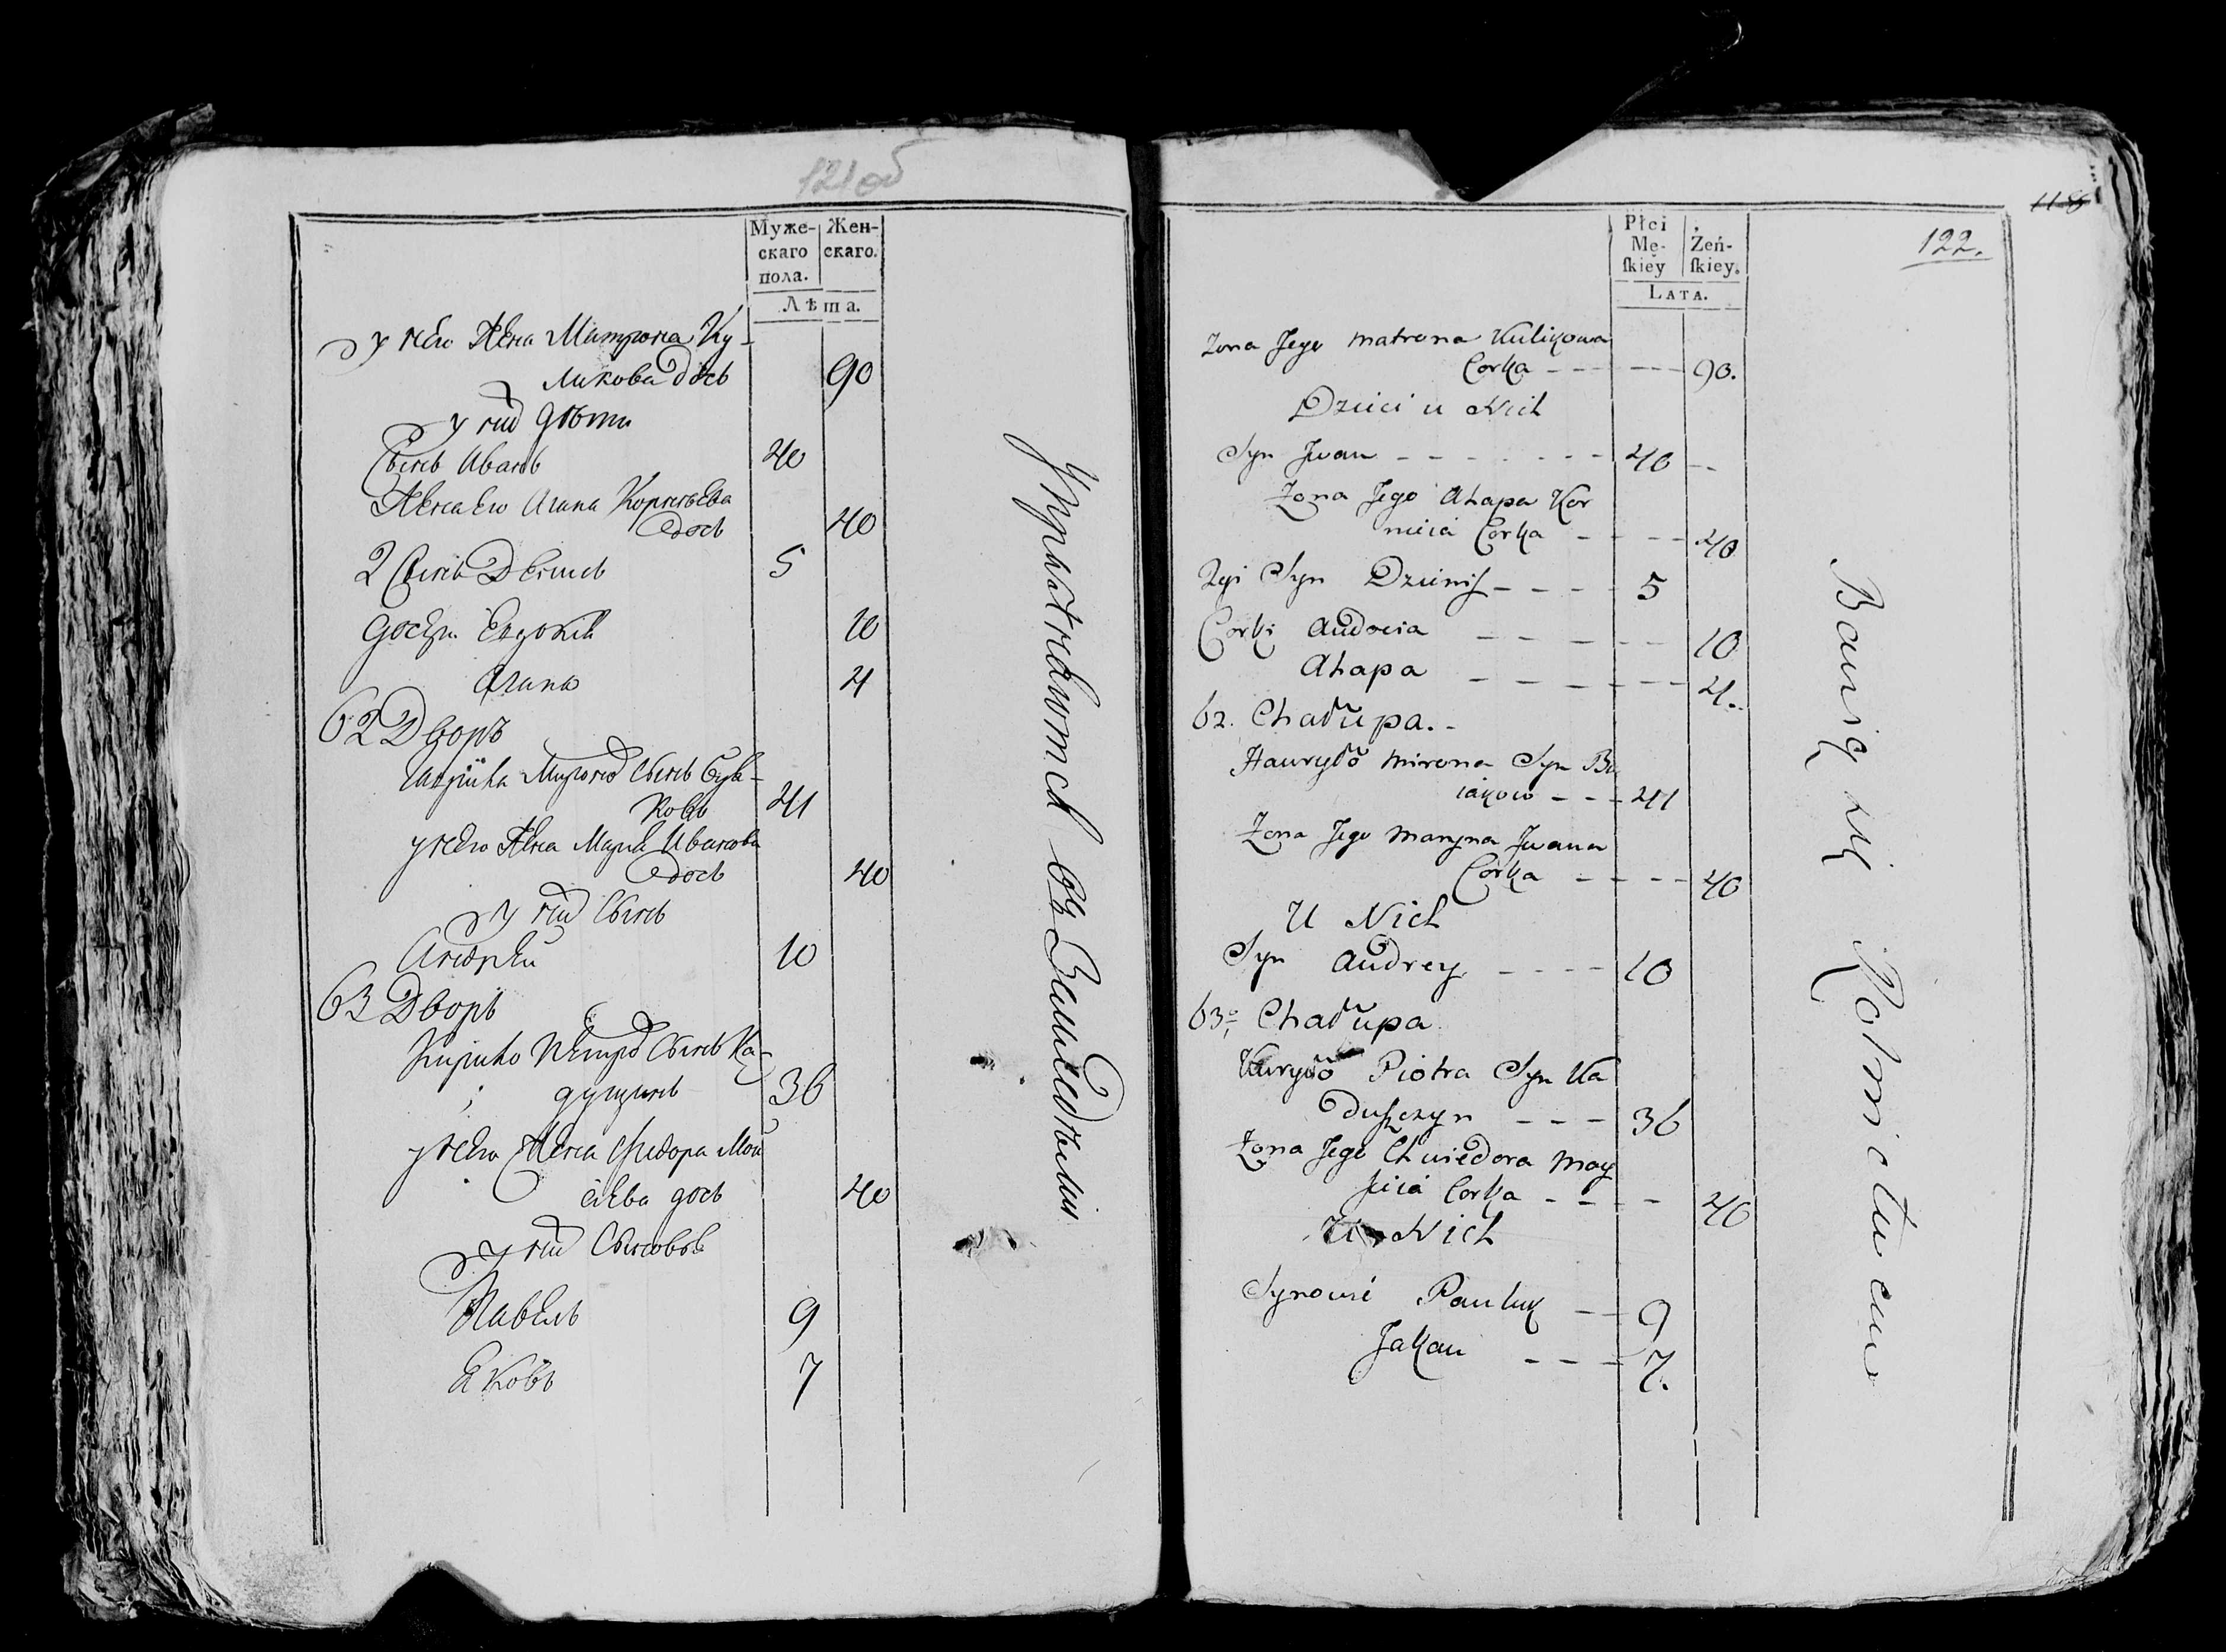 121 об
Муже-
скаго
пола.
Жен-
скаго.
Лѣта.
у него Жена Матрона Ку-
ликова дочь 90
у них дѣти
Сынъ Иванъ 40
Жена Его Агапа Корнѣева
дочь 40
2 Сынъ Денисъ 5
дочери Евдокія 10
Агапа 4
62 Дворъ
Гаврила Мирона Сынъ Буя-
ковъ 41
у него Жена Марья Иванова
дочь 40
у них Сынъ
Андрей 10
63 Дворъ
Кирило Петра Сынъ Ка-
дущинъ 36
у него Жена Фиедора Мой
сіева дочь 40
у них Сыновья
Павелъ 9
Яковъ 7
Упражняются въ Земледеліи
118
122.
Płci
Mę-
ſkiey
Żeń-
ſkiey.
LATA.
Zona Jego Matrona Kulikowa
Corka - - - - - - 90.
Dzieci u Nich
Syn Jwan - - - - - - - 40 --
Zona Jego Ahapa Kor
nieia Corka - - - - 40
2gi Syn Dzienis - - - - 5
Corki Audocia - - - - - - 10
Ahapa - - - - - - - 4.
62. Chałupa. -
Hauryło Mirona Syn Bu
iakow - - - 41
Zona Jego Maryna Jwana
Corka - - - - 40
U Nich
Syn Andrey - - - - 10
63o Chałupa
Kuryło Piotra Syn Ka
duszczyn - - - 36
Zona Jego Chwiedora May
sieia Corka - - - 40
U Nich
Synowie Pauluk - - 9
Jakau - - - 7.
Bawią się Rolnictwem